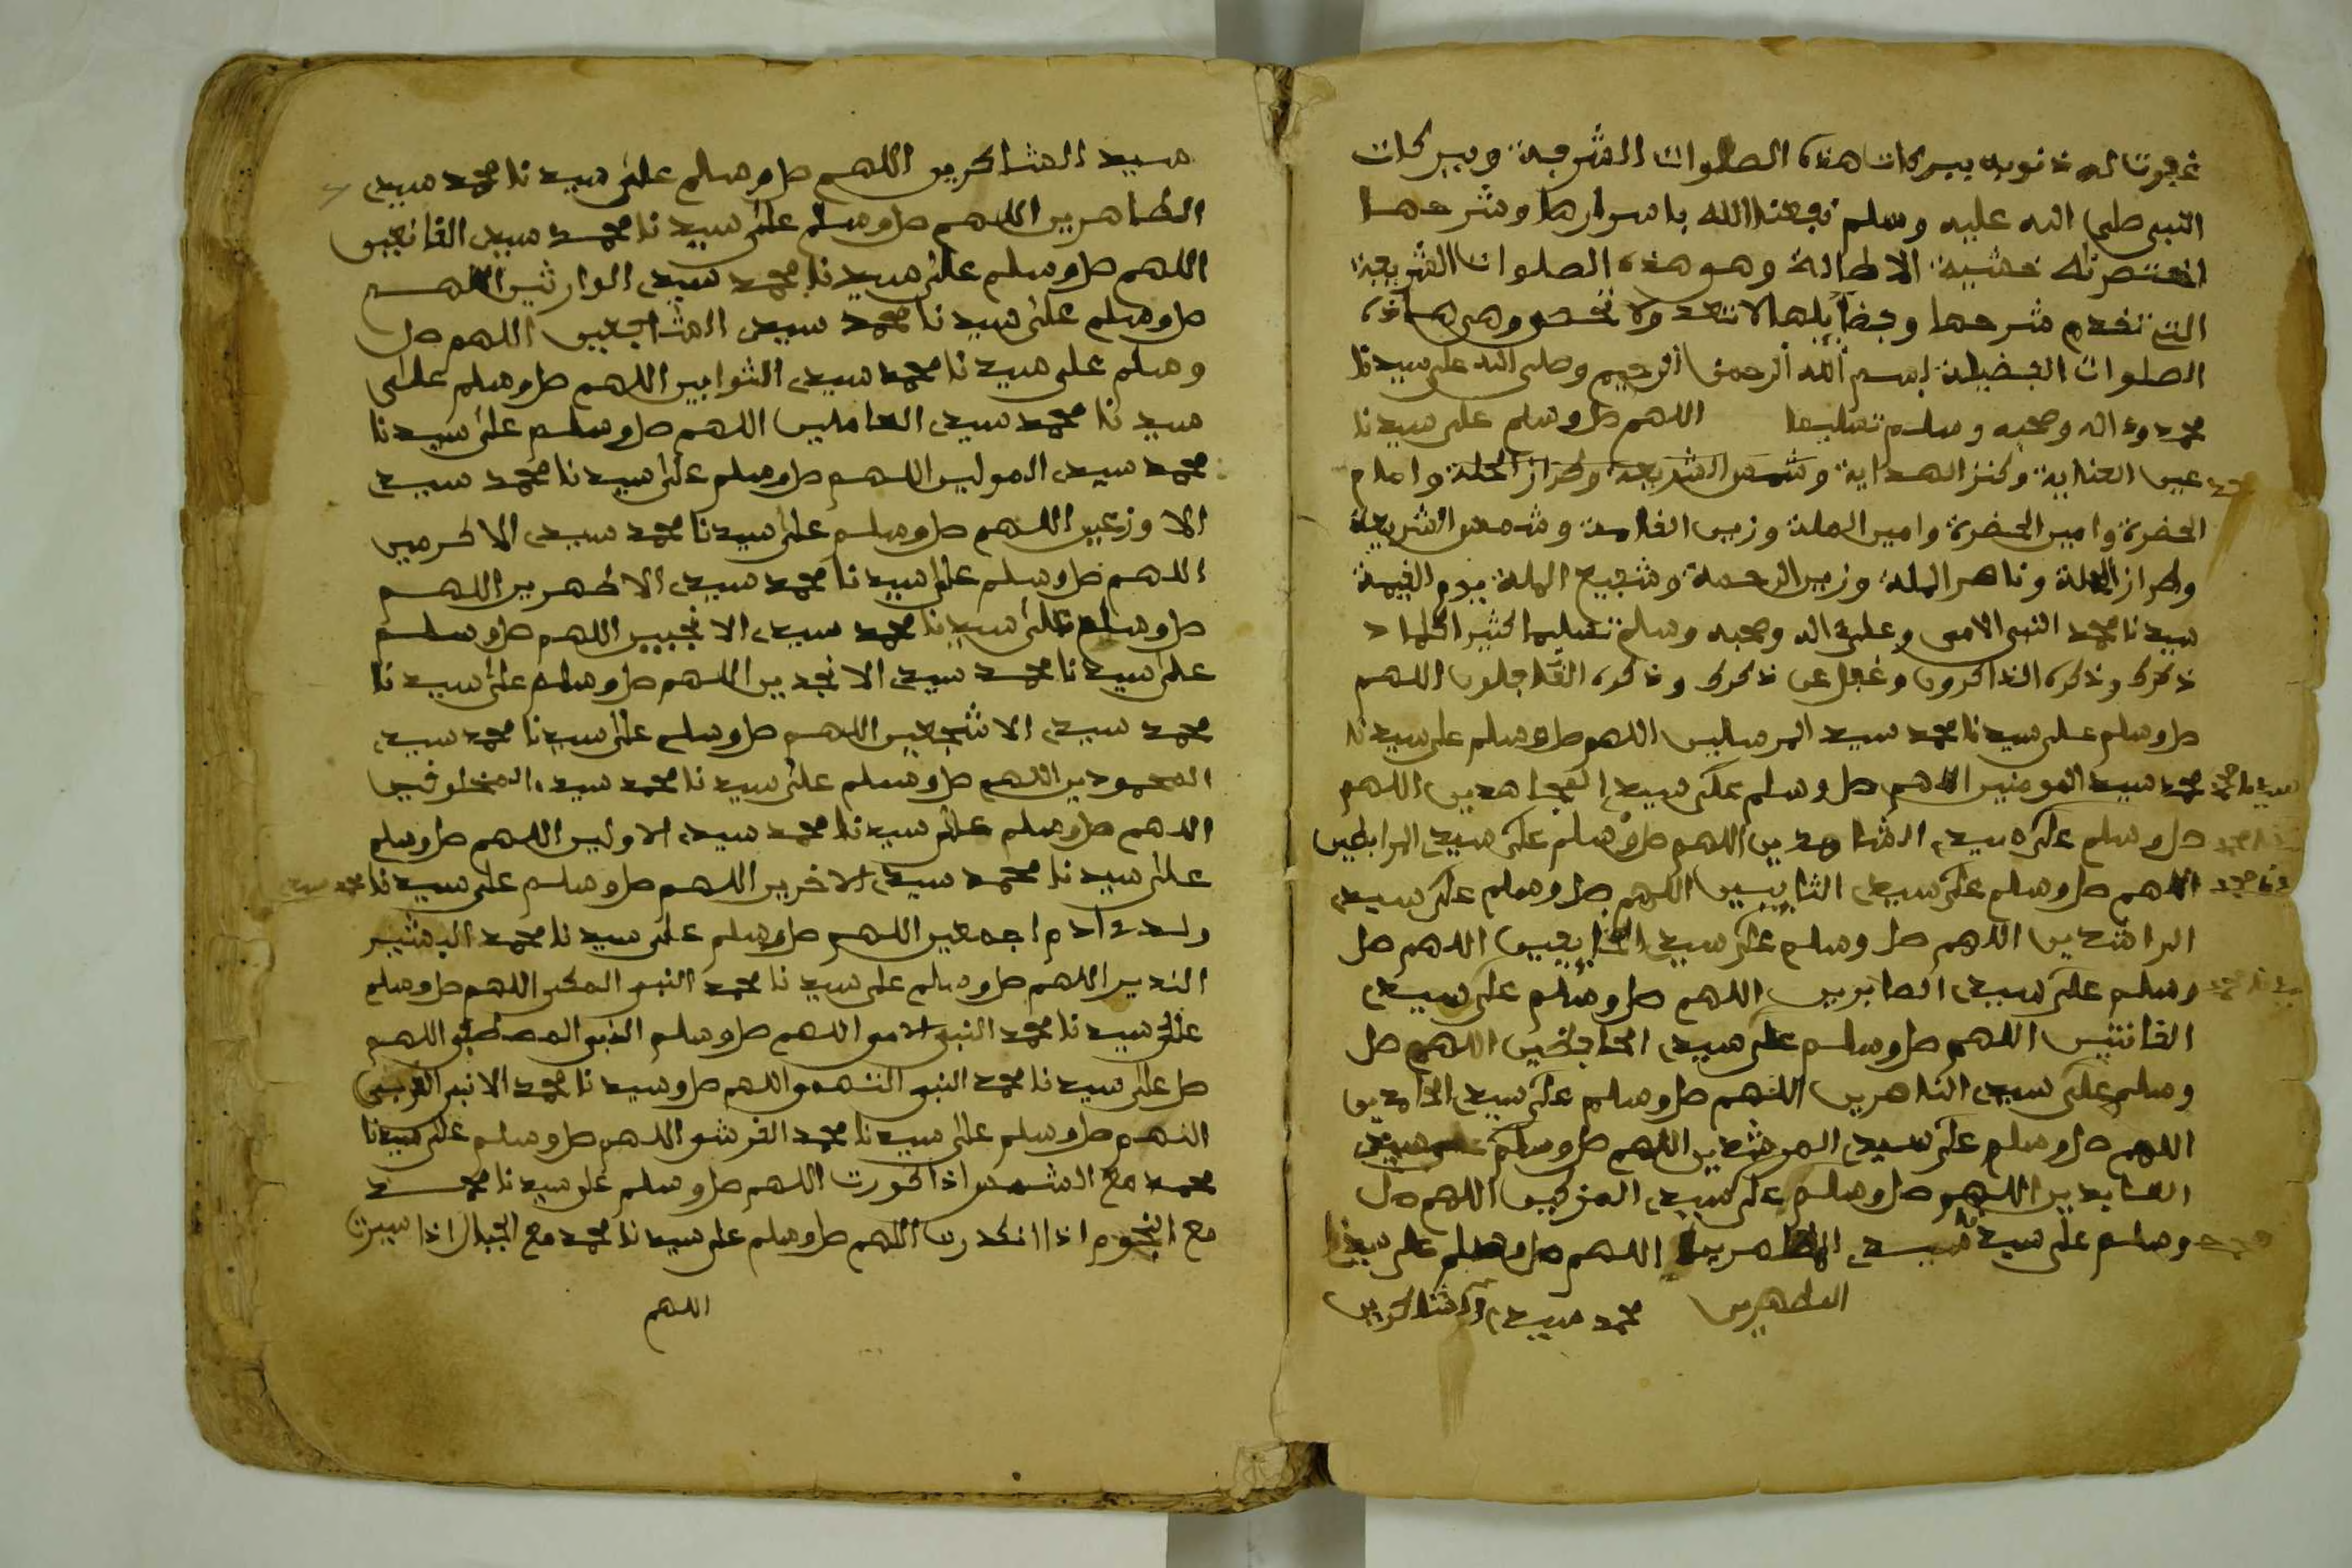 غفرت له ذنوبه ببركات هذه الصلوات الشريفة وببركات
النبي صلى الله عليه وسلم نفعنا الله باسرارها وشرحها
اختصرناه خشية الاطالة وهو هذه الصلوات الشريفة
التي تقدم شرحها وفضآيلها لا تعد ولا تحصى وهي هاذه
الصلوات الفضيلة بسم الله الرحمن الرحيم وصلى الله على سيدنا
محمد وءاله وصحبه وسلم تسليما اللهم صل وسلم على سيدنا
محمد عين العناية وكنز الهداية وشمس الشريعة وطراز الحلة وامام
الحضرة وامير الحضرة وامير الملة وزين القامة وشمس الشريعة
وطراز الحلة وناصر الملة وزين الرحمة وشفيع الملة يوم القيمة
سيدنا محمد النبي الامي وعلى ءاله وصحبه وسلم تسليما كثيرا كلما
ذكرك وذكره الذاكرون وغفل عن ذكرك وذكره الغافلون اللهم
صل وسلم على سيدنا محمد سيد المرسلين اللهم صل وسلم على سيدنا
محمد سيد المومنين اللهم صل وسلم على سيد المجاهدين اللهم سيدنا محمد
صل وسلم على سيد الشاهدين اللهم صل وسلم على سيد المرابطين
اللهم صل وسلم على سيد التايبين اللهم صل وسلم على سيد
الراشدين اللهم صل وسلم على سيد الخايفين اللهم صل
وسلم على سيد الصابرين اللهم صل وسلم على سيد
القانتين اللهم صل وسلم على سيد الحافظين اللهم صل
وسلم على سيد الناصرين اللهم صل وسلم على سيد الحامدين
اللهم صل وسلم على سيد المرشدين اللهم صل وسلم على سيد
العابدين اللهم صل وسلم على سيد المزكين اللهم صل
محمد وسلم على سيدنا سيد اللهم صل وسلم على سيدنا
المطهرين محمد سيد الشاكرين
سيد الشاكرين اللهم صل وسلم على سيدنا محمد سيد
الطاهرين اللهم صل وسلم على سيدنا محمد سيد القانعين
اللهم صل وسلم على سيدنا محمد سيد الوارثين اللهم
صل وسلم على سيدنا محمد سيد الشافعين اللهم صل
وسلم على سيدنا محمد سيد التوابين اللهم صل وسلم على
سيدنا محمد سيد العاملين اللهم صل وسلم على سيدنا
محمد سيد المولين اللهم صل وسلم على سيدنا محمد سيد
الاوزعين اللهم صل وسلم على سيدنا محمد سيد الاكرمين
اللهم صل وسلم على سيدنا محمد سيد الاطهرين اللهم
صل وسلم على سيدنا محمد سيد الانجبين اللهم صل وسلم
على سيدنا محمد سيد الانجدين اللهم صل وسلم على سيدنا
محمد سيد الاشجعين اللهم صل وسلم على سيدنا محمد سيد
المحمودين اللهم صل وسلم على سيدنا محمد سيد المخلوقين
اللهم صل وسلم على سيدنا محمد سيد الاولين اللهم صل وسلم
على سيدنا محمد سيد الاخرين اللهم صل وسلم على سيدنا محمد سيد
ولد ءادم اجمعين اللهم صل وسلم على سيدنا محمد البشير
النذير اللهم صل وسلم على سيدنا محمد النبي المكي اللهم صل وسلم
على سيدنا محمد النبي الامي اللهم صل وسلم النبي المصطفى اللهم
صل على سيدنا محمد النبي التهمي اللهم صل وسيدنا محمد العربي
اللهم صل وسلم على سيدنا محمد القرشي اللهم صل وسلم على سيدنا
محمد مع الشمس اذا كورت اللهم صل وسلم على سيدنا محمد
مع النجوم اذا انكدرت اللهم صل وسلم على سيدنا محمد مع الجبال اذا سيرت
اللهم